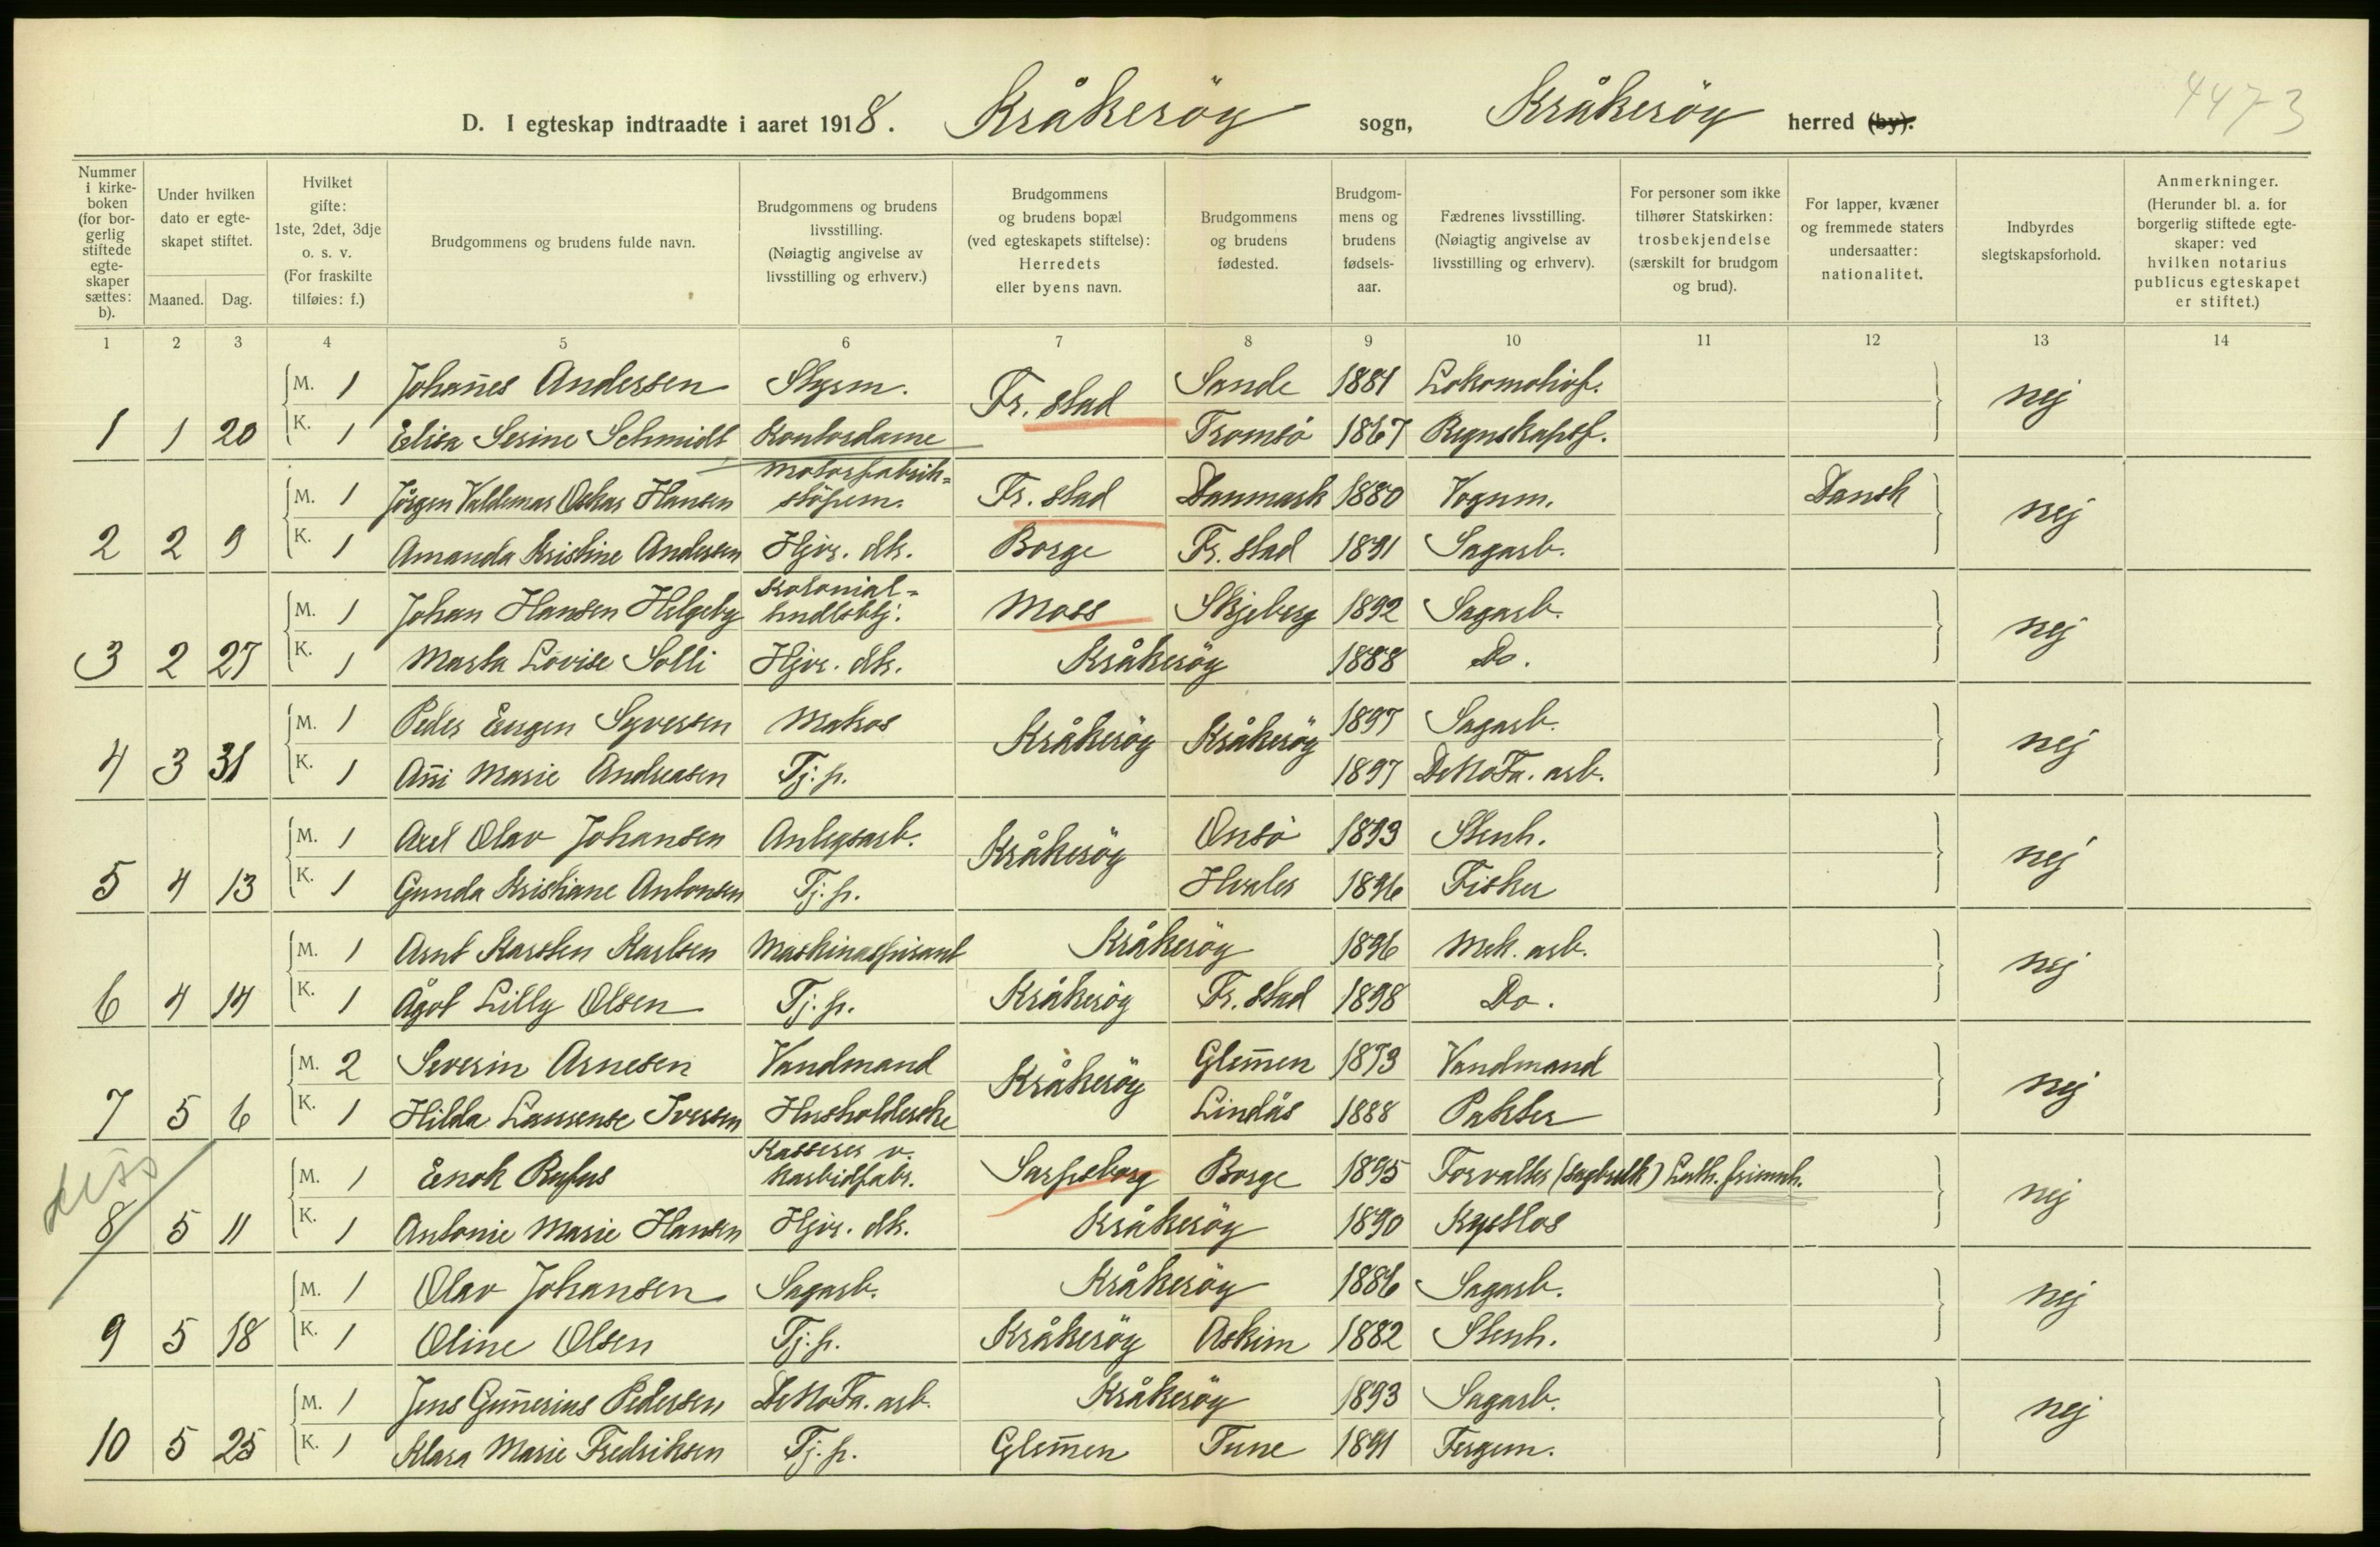 4473
D. I egteskap indtraadte i aaret 1918. Kråkeröy sogn, Kråkeröy herred (by).
Nummer i kirkeboken (for borgerlig stiftede egteskaper sættes: b).
Under hvilken dato er egteskapet stiftet.
Maaned. Dag.
Hvilket gifte: 1ste, 2det, 3dje o. s. v. (For fraskilte tilføies: f.)
Brudgommens og brudens fulde navn.
Brudgommens og brudens livsstilling. (Nøiagtig angivelse av livsstilling og erhverv.)
Brudgommens og brudens bopæl (ved egteskapets stiftelse): Herredets eller byens navn.
Brudgommens og brudens fødested.
Brudgommens og brudens fødselsaar.
Fædrenes livsstilling. (Nøiagtig angivelse av livsstilling og erhverv).
For personer som ikke tilhører Statskirken: trosbekjendelse (særskilt for brudgom og brud).
For lapper, kvæner og fremmede staters undersaatter: nationalitet.
Indbyrdes slegtskapsforhold.
Anmerkninger. (Herunder bl. a. for borgerlig stiftede egteskaper: ved hvilken notarius publicus egteskapet er stiftet.)
1 2 3 4 5 6 7 8 9 10 11 12 13 14
M. 1 Johan̄es Andersen Styrm. Fr. stad Sande 1881 Lokomotivf. nej
1 1 20 K. 1 Elisa Serine Schmidt Kontordame Tromsö 1867 Regnskapsf.
M. 1 Jörgen Valdemar Oskar Hansen Motorfabrik-støperm. Fr. stad Danmark 1880 Vognm. Dansk nej
2 2 9 K. 1 Amanda Kristine Andersen Hjvr. dtr. Borge Fr. stad 1891 Sagarb.
M. 1 Johan Hansen Helgeby Kolonial-handlsbtj. Moss Skjeberg 1892 Sagarb. nej
3 2 27 K. 1 Marta Lovise Solli Hjvr. dtr. Kråkeröy 1888 Do.
M. 1 Peder Eugen Syversen Matros Kråkeröy Kråkeröy 1897 Sagarb. nej
4 3 31 K. 1 An̄i Marie Andreasen Tj. p. 1897 DeNoFa. arb.
M. 1 Axel Olav Johansen Anlegsarb. Kråkeröy Onsö 1893 Stenh. nej
5 4 13 K. 1 Gunda Kristiane Antonsen Tj. p. Hvaler 1896 Fisker
M. 1 Arnt Karsten Karlsen Maskinaspirant Kråkeröy 1896 Mek. arb. nej
6 4 14 K. 1 Ågot Lilly Olsen Tj. p. Kråkeröy Fr. stad 1898 Do.
M. 2 Severin Arnesen Vandmand Kråkeröy Glem̄en 1873 Vandmand nej
7 5 6 K. 1 Hilda Laurense Iversen Husholderske Lindås 1888 Pakter
diss
M. 1 Enok Rufus Kasserer v. karbidfabr. Sarpsborg Borge 1895 Forvalter (sagbruk) Luth. frimenh. nej
8 5 11 K. 1 Antonie Marie Hansen Hjvr. dtr. Kråkeröy 1890 Kystlos
M. 1 Olav Johansen Sagarb. Kråkeröy 1886 Sagarb. nej
9 5 18 K. 1 Oline Olsen Tj. p. Kråkeröy Askim 1882 Stenh.
M. 1 Jens Gun̄erius Pedersen DeNoFa. arb. Kråkeröy 1893 Sagarb. nej
10 5 25 K. 1 Klara Marie Fredriksen Tj. p. Glem̄en Tune 1891 Fergem.